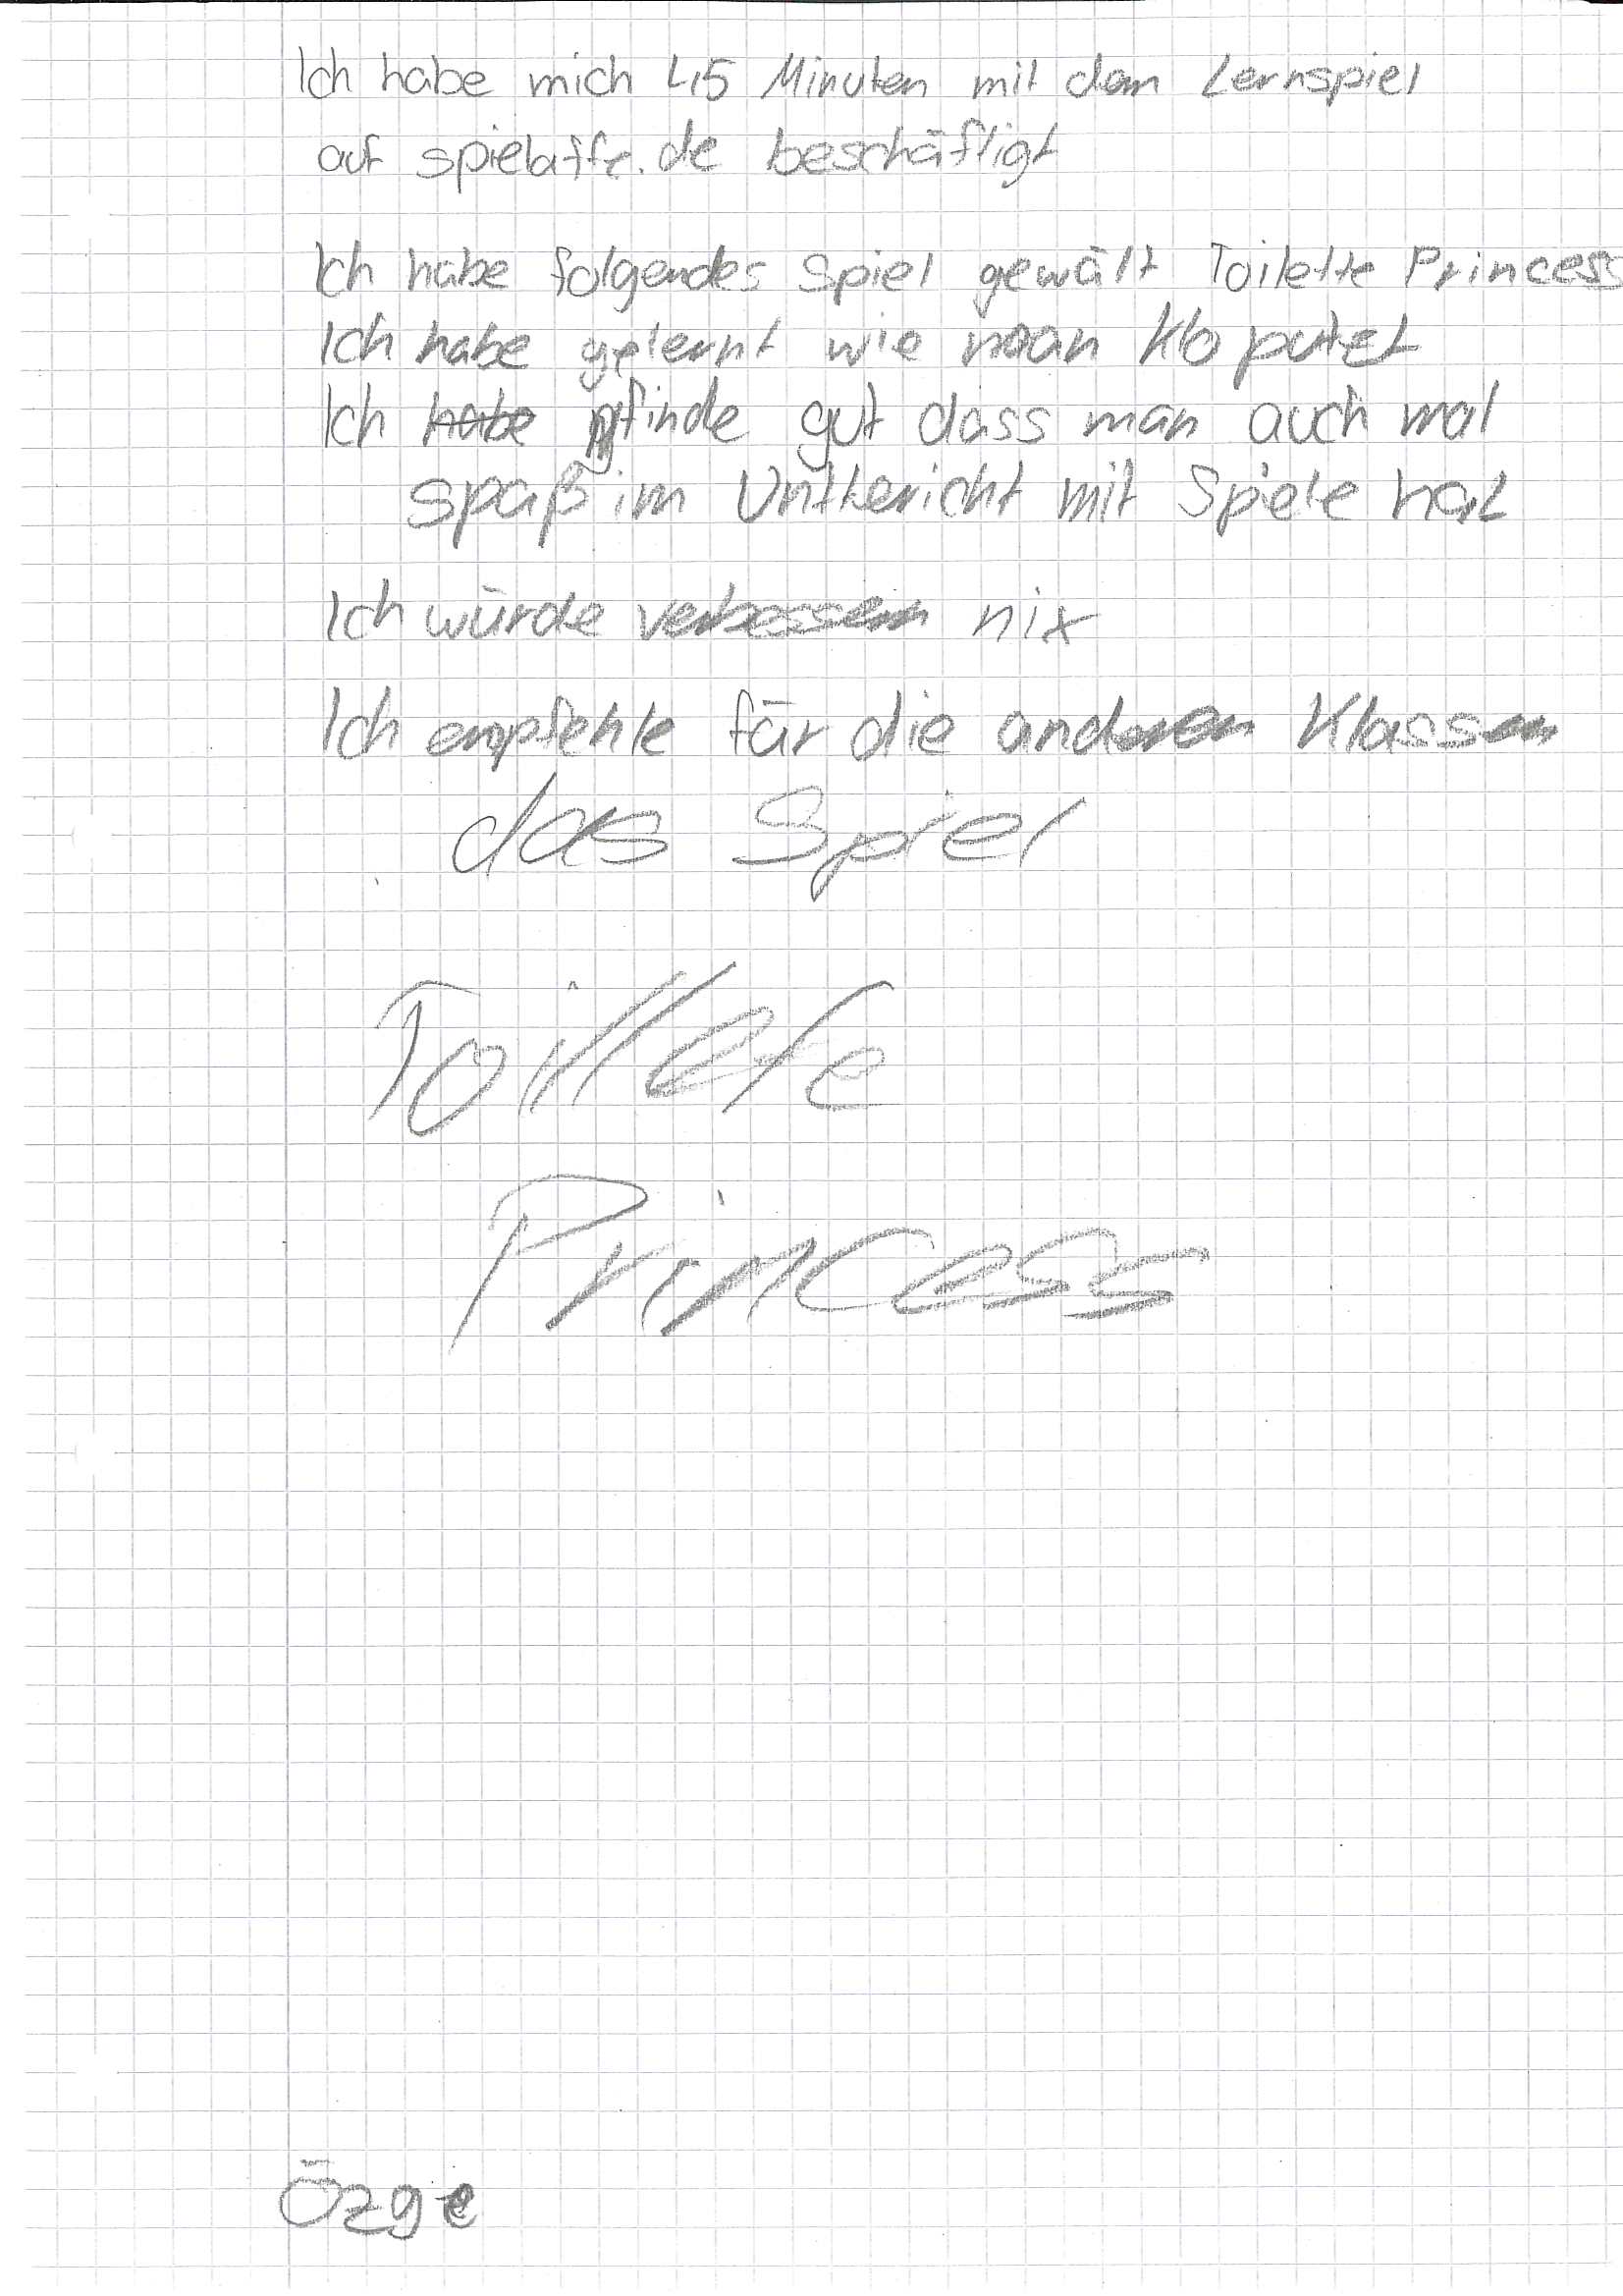 Ich habe mich 45 Minuten mit dem Lernspiel
auf spielaffe.de beschäftigt
Ich habe folgendes Spiel gewält Toilette Princess
Ich habe gelernt wie man Klo putzt
Ich habe finde gut dass man auch mal
spaß im Untericht mit Spiele hat
Ich würde verbessern nix
Ich empfehle für die anderen Klassen
das Spiel
Toillete
Princess
Özge